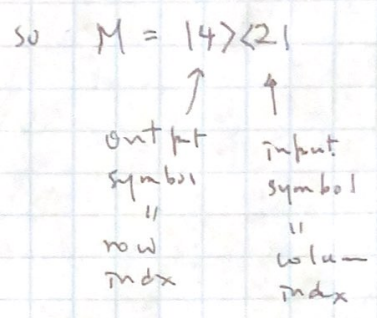 so M = |4><2|
output
symbol
"
row
indx
input
symbol
"
colum
indx